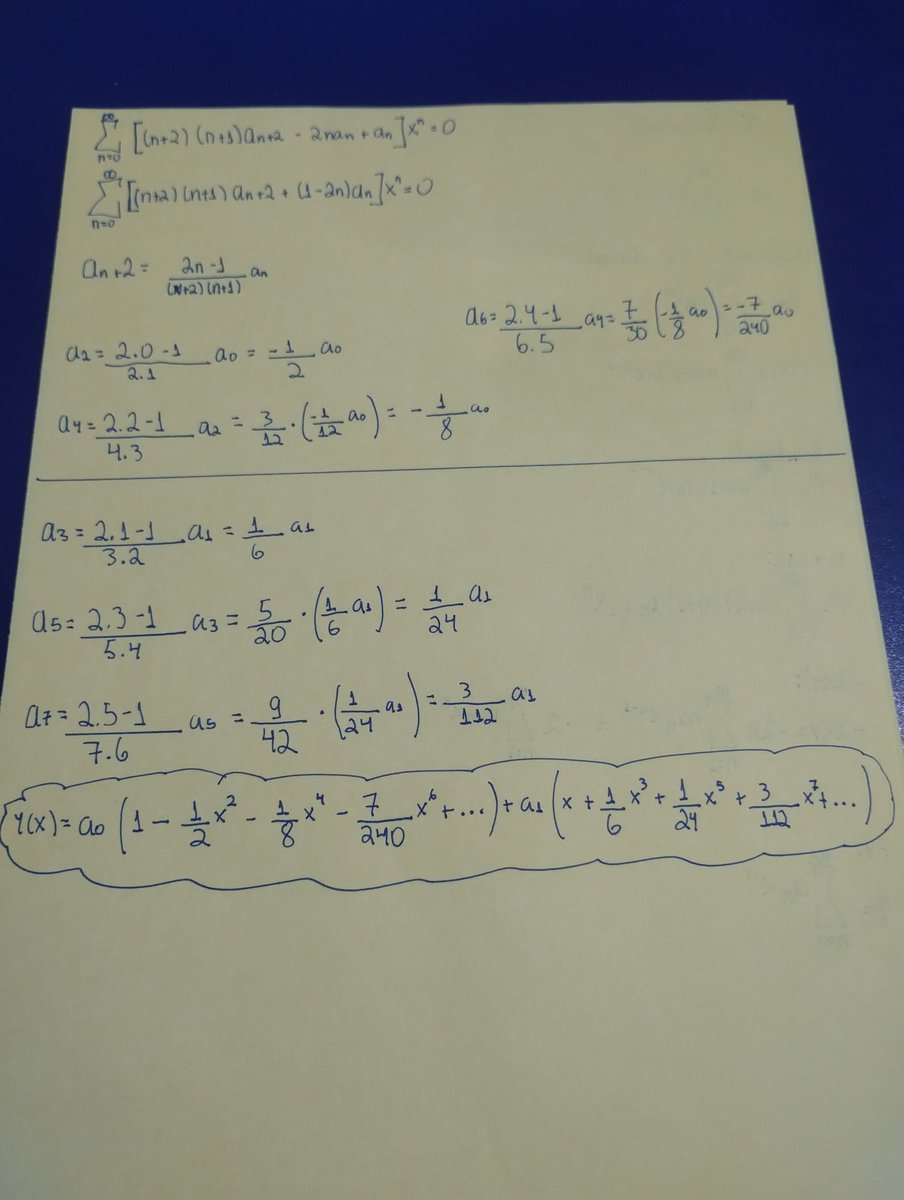 ∞
Σ [(n+2)(n+1)an+2 - 2nan + an]xⁿ = 0
n=0
∞
Σ [(n+2)(n+1)an+2 + (1-2n)an]xⁿ = 0
n=0
an+2 = (2n-1)/((n+2)(n+1)) an
a6 = (2.4-1)/(6.5) a4 = 7/30 (-1/8 a0) = -7/240 a0
a2 = (2.0-1)/(2.1) a0 = -1/2 a0
a4 = (2.2-1)/(4.3) a2 = 3/12 · (-1/12 a0) = -1/8 a0
a3 = (2.1-1)/(3.2) a1 = 1/6 a1
a5 = (2.3-1)/(5.4) a3 = 5/20 · (1/6 a1) = 1/24 a1
a7 = (2.5-1)/(7.6) a5 = 9/42 · (1/24 a1) = 3/112 a1
Y(x) = a0 (1 - 1/2 x² - 1/8 x⁴ - 7/240 x⁶ + ...) + a1 (x + 1/6 x³ + 1/24 x⁵ + 3/112 x⁷ + ...)